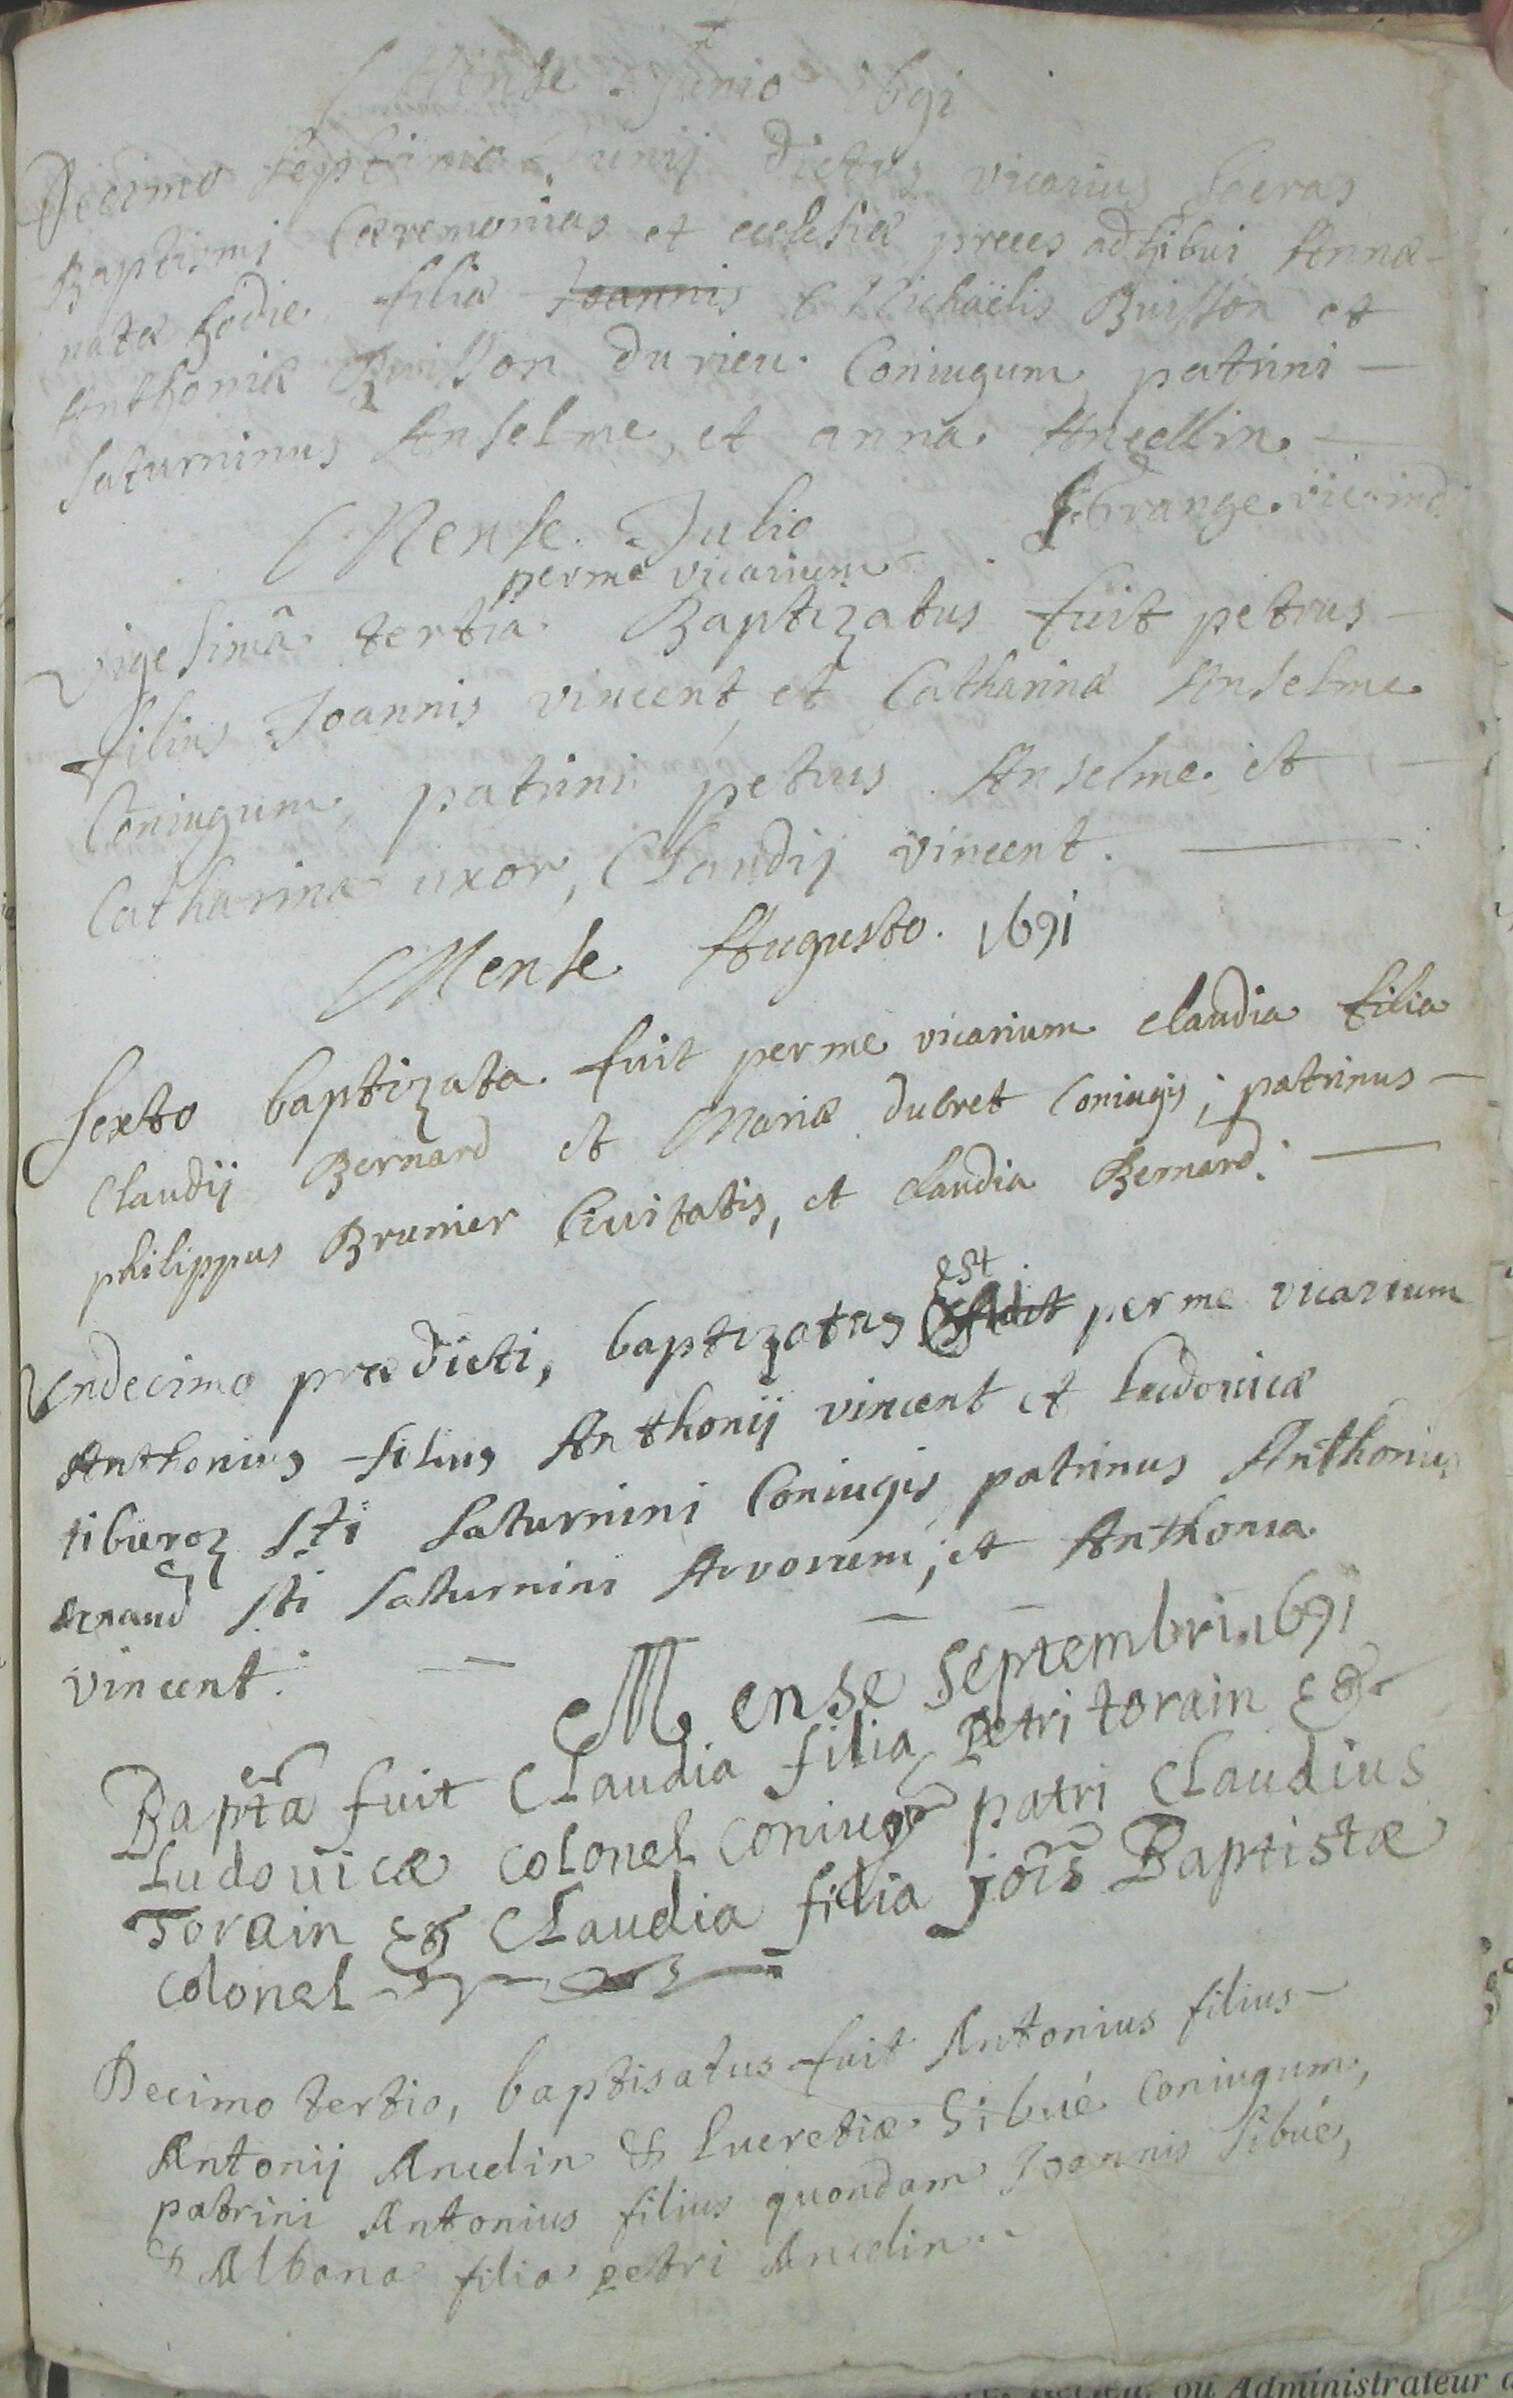 Mense Junio 1691
Decimo septimo Junij dictus vicarius sacras
Baptismi Cæremonias et ecclesiæ preces adhibui Annæ
natæ hodie filiæ Joannis Michaëlis Buisson et
Anthoniæ Buisson du rieu Coniugum patrini
saturninus Anselme, et anna Ancellin.
Grange. vic. ind.
Mense Julio
per me vicarium
vigesimâ tertia Baptizatus fuit petrus
filius Joannis vincent et Catharinæ Anselme
Coniugum, patrini petrus Anselme et
Catharina uxor, Claudij vincent.
Mense Augusto. 1691
Sexto baptizata fuit per me vicarium claudia filia
Claudij Bernard et Mariæ dubret Coniugis; patrinus
philippus Brunier Civitatis, et claudia Bernard.
Undecimo prædicti, baptizatus est per me vicarium
Anthonius filius Anthonij vincent et Ludovicæ
tibueroz Sti Saturnini Coniugis patrinus Anthonius
Arnaud Sti Saturnini Arvorum; et Anthonia
vincent.
Mense septembri. 1691
Bapta fuit Claudia filia Petri torain &
Ludovicæ colonel coniug patri Claudius
Torain & Claudia filia jois Baptistæ
colonel
Decimo tertio, baptisatus fuit Antonius filius
Antonij Ancelin & Lucretiæ Sibué coniugum,
patrini Antonius filius quondam Joannis Sibué,
& Albana filia petri Ancelin.
ou Administrateur